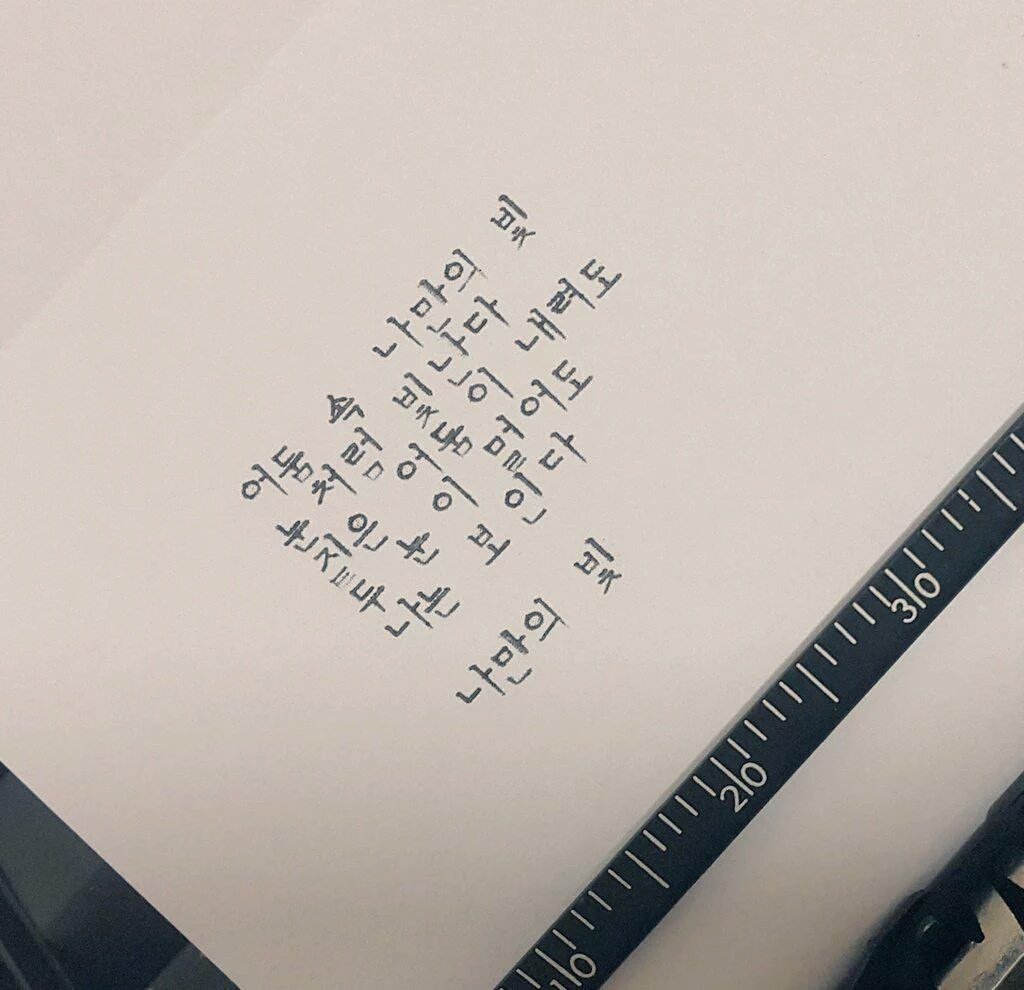 어둠 속 나만의 빛
눈처럼 빛난다
짙은 어둠이 내려도
두 눈이 멀어도
나는 보인다
나만의 빛
10
20
30